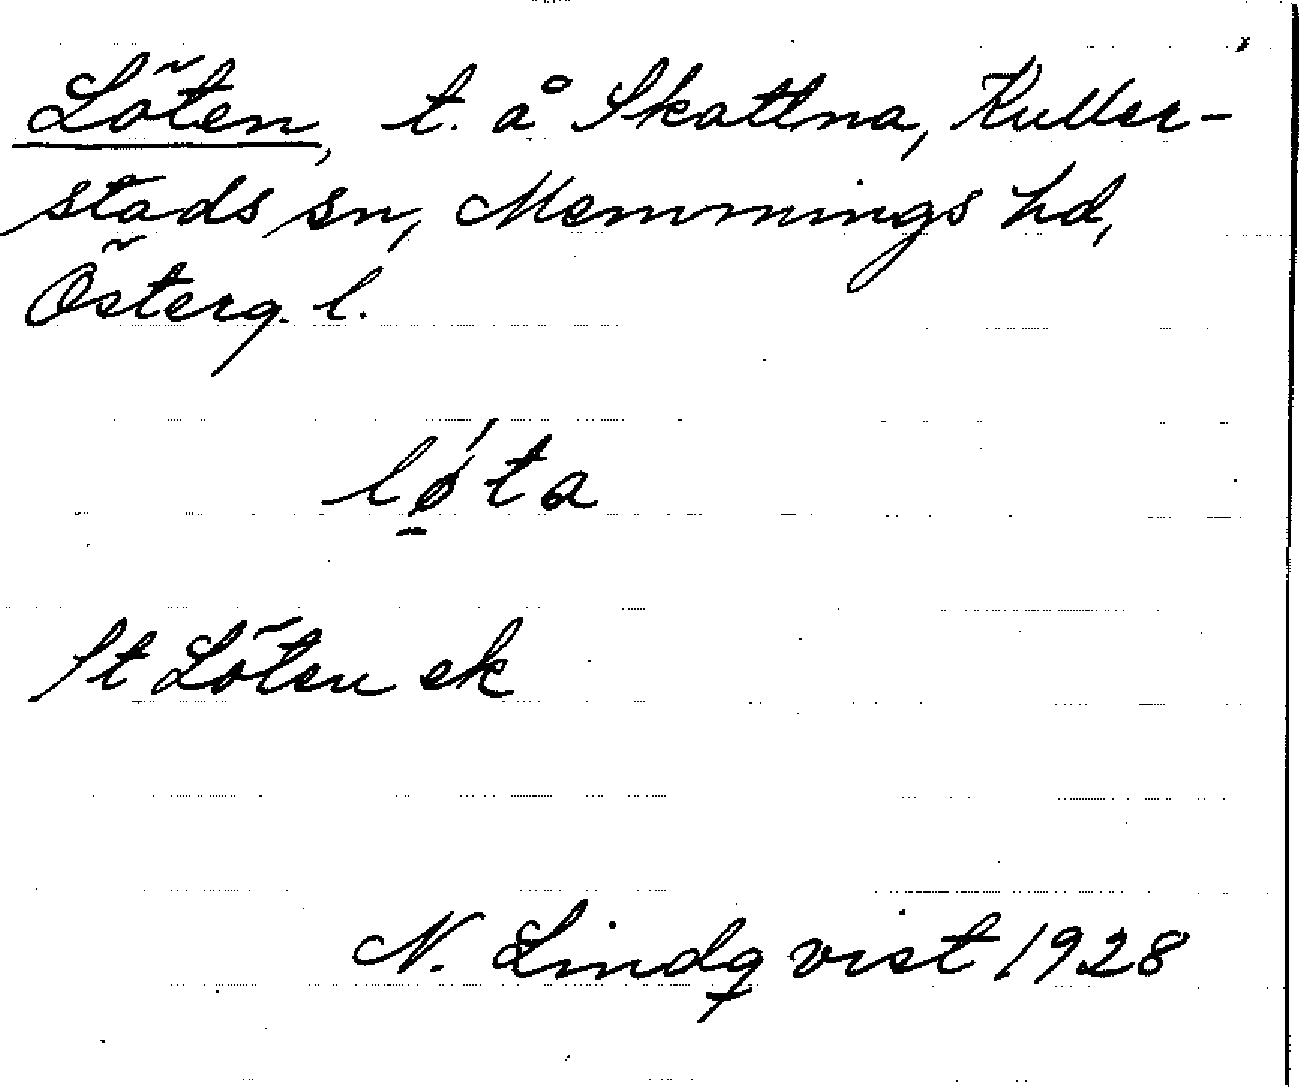 Löten, t. å Skattna, Kuller-
stads sn, Memmings hd,
Österg. l.
lǿ̱ta
/t Löten ek
N. Lindqvist 1928